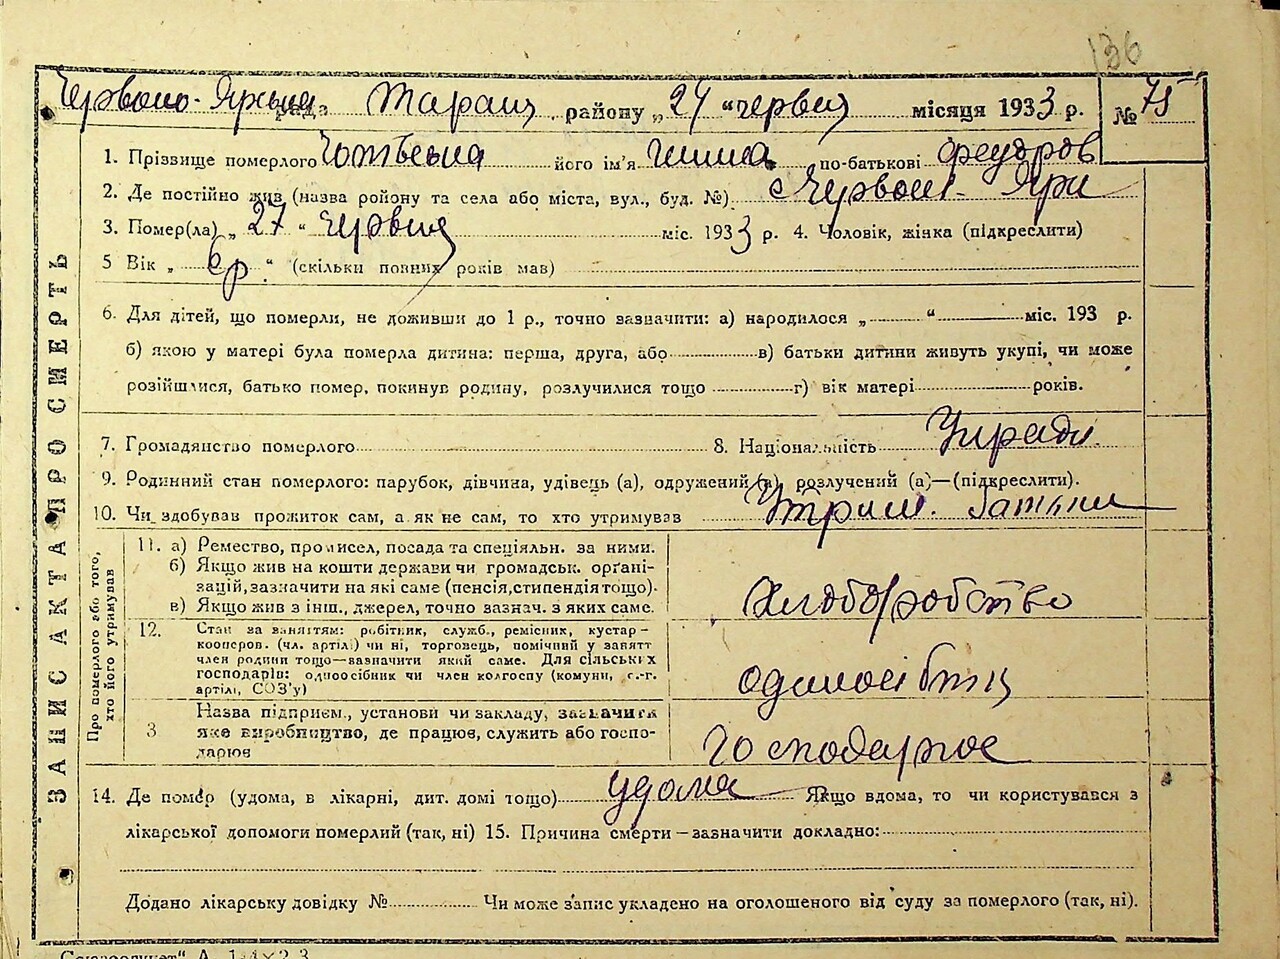 136
Червоно-Ярська рада Таращ району „24 “ червня місяця 1933 р. № 75
1. Прізвище померлого його ім'я по-батькові Федоров
2. Де постійно жив (назва району та села або міста, вул., буд. №) с Червоні-Яри
3. Помер(ла) „ 27 “ червня міс. 1933 р. 4. Чоловік, жінка (підкреслити)
5 Вік „ 6 р. “ (скільки повних років мав)
6. Для дітей, що померли, не доживши до 1 р., точно зазначити: а) народилося „ “ міс. 193 р.
б) якою у матері була померла дитина: перша, друга, або в) батьки дитини живуть укупі, чи може
розійшлися, батько помер, покинув родину, розлучилися тощо г) вік матері років.
7. Громадянство померлого 8. Національність
9. Родинний стан померлого: парубок, дівчина, удівець (а), одружений (а), розлучений (а)—(підкреслити).
10. Чи здобував прожиток сам, а як не сам, то хто утримував Утрим. батьки
ЗАПИС АКТА ПРО СМЕРТЬ
Про померлого або того,
хто його утримував
11. а) Ремество, промисел, посада та спеціяльн. за ними.
б) Якщо жив на кошти держави чи громадськ. орґані-
зацій, зазначити на які саме (пенсія, стипендія тощо).
в) Якщо жив з інш., джерел, точно зазнач. з яких саме.
хліборобство
12. Стан за заняттям: робітник, служб., ремісник, кустар-
кооперов. (чл. артілі) чи ні, торговець, помічний у занятт
член родини тощо—зазначити який саме. Для сільських
господарів: одноосібник чи член колгоспу (комуни, с.-г.
артілі, СОЗ'у)
одноосібниц
3 Назва підприєм., установи чи закладу, зазначити
яке виробництво, де працює, служить або госпо-
дарює
господарює
14. Де помер (удома, в лікарні, дит. домі тощо) удома Якщо вдома, то чи користувався з
лікарської допомоги померлий (так, ні) 15. Причина смерти—зазначити докладно:
Додано лікарську довідку № Чи може запис укладено на оголошеного від суду за померлого (так, ні).